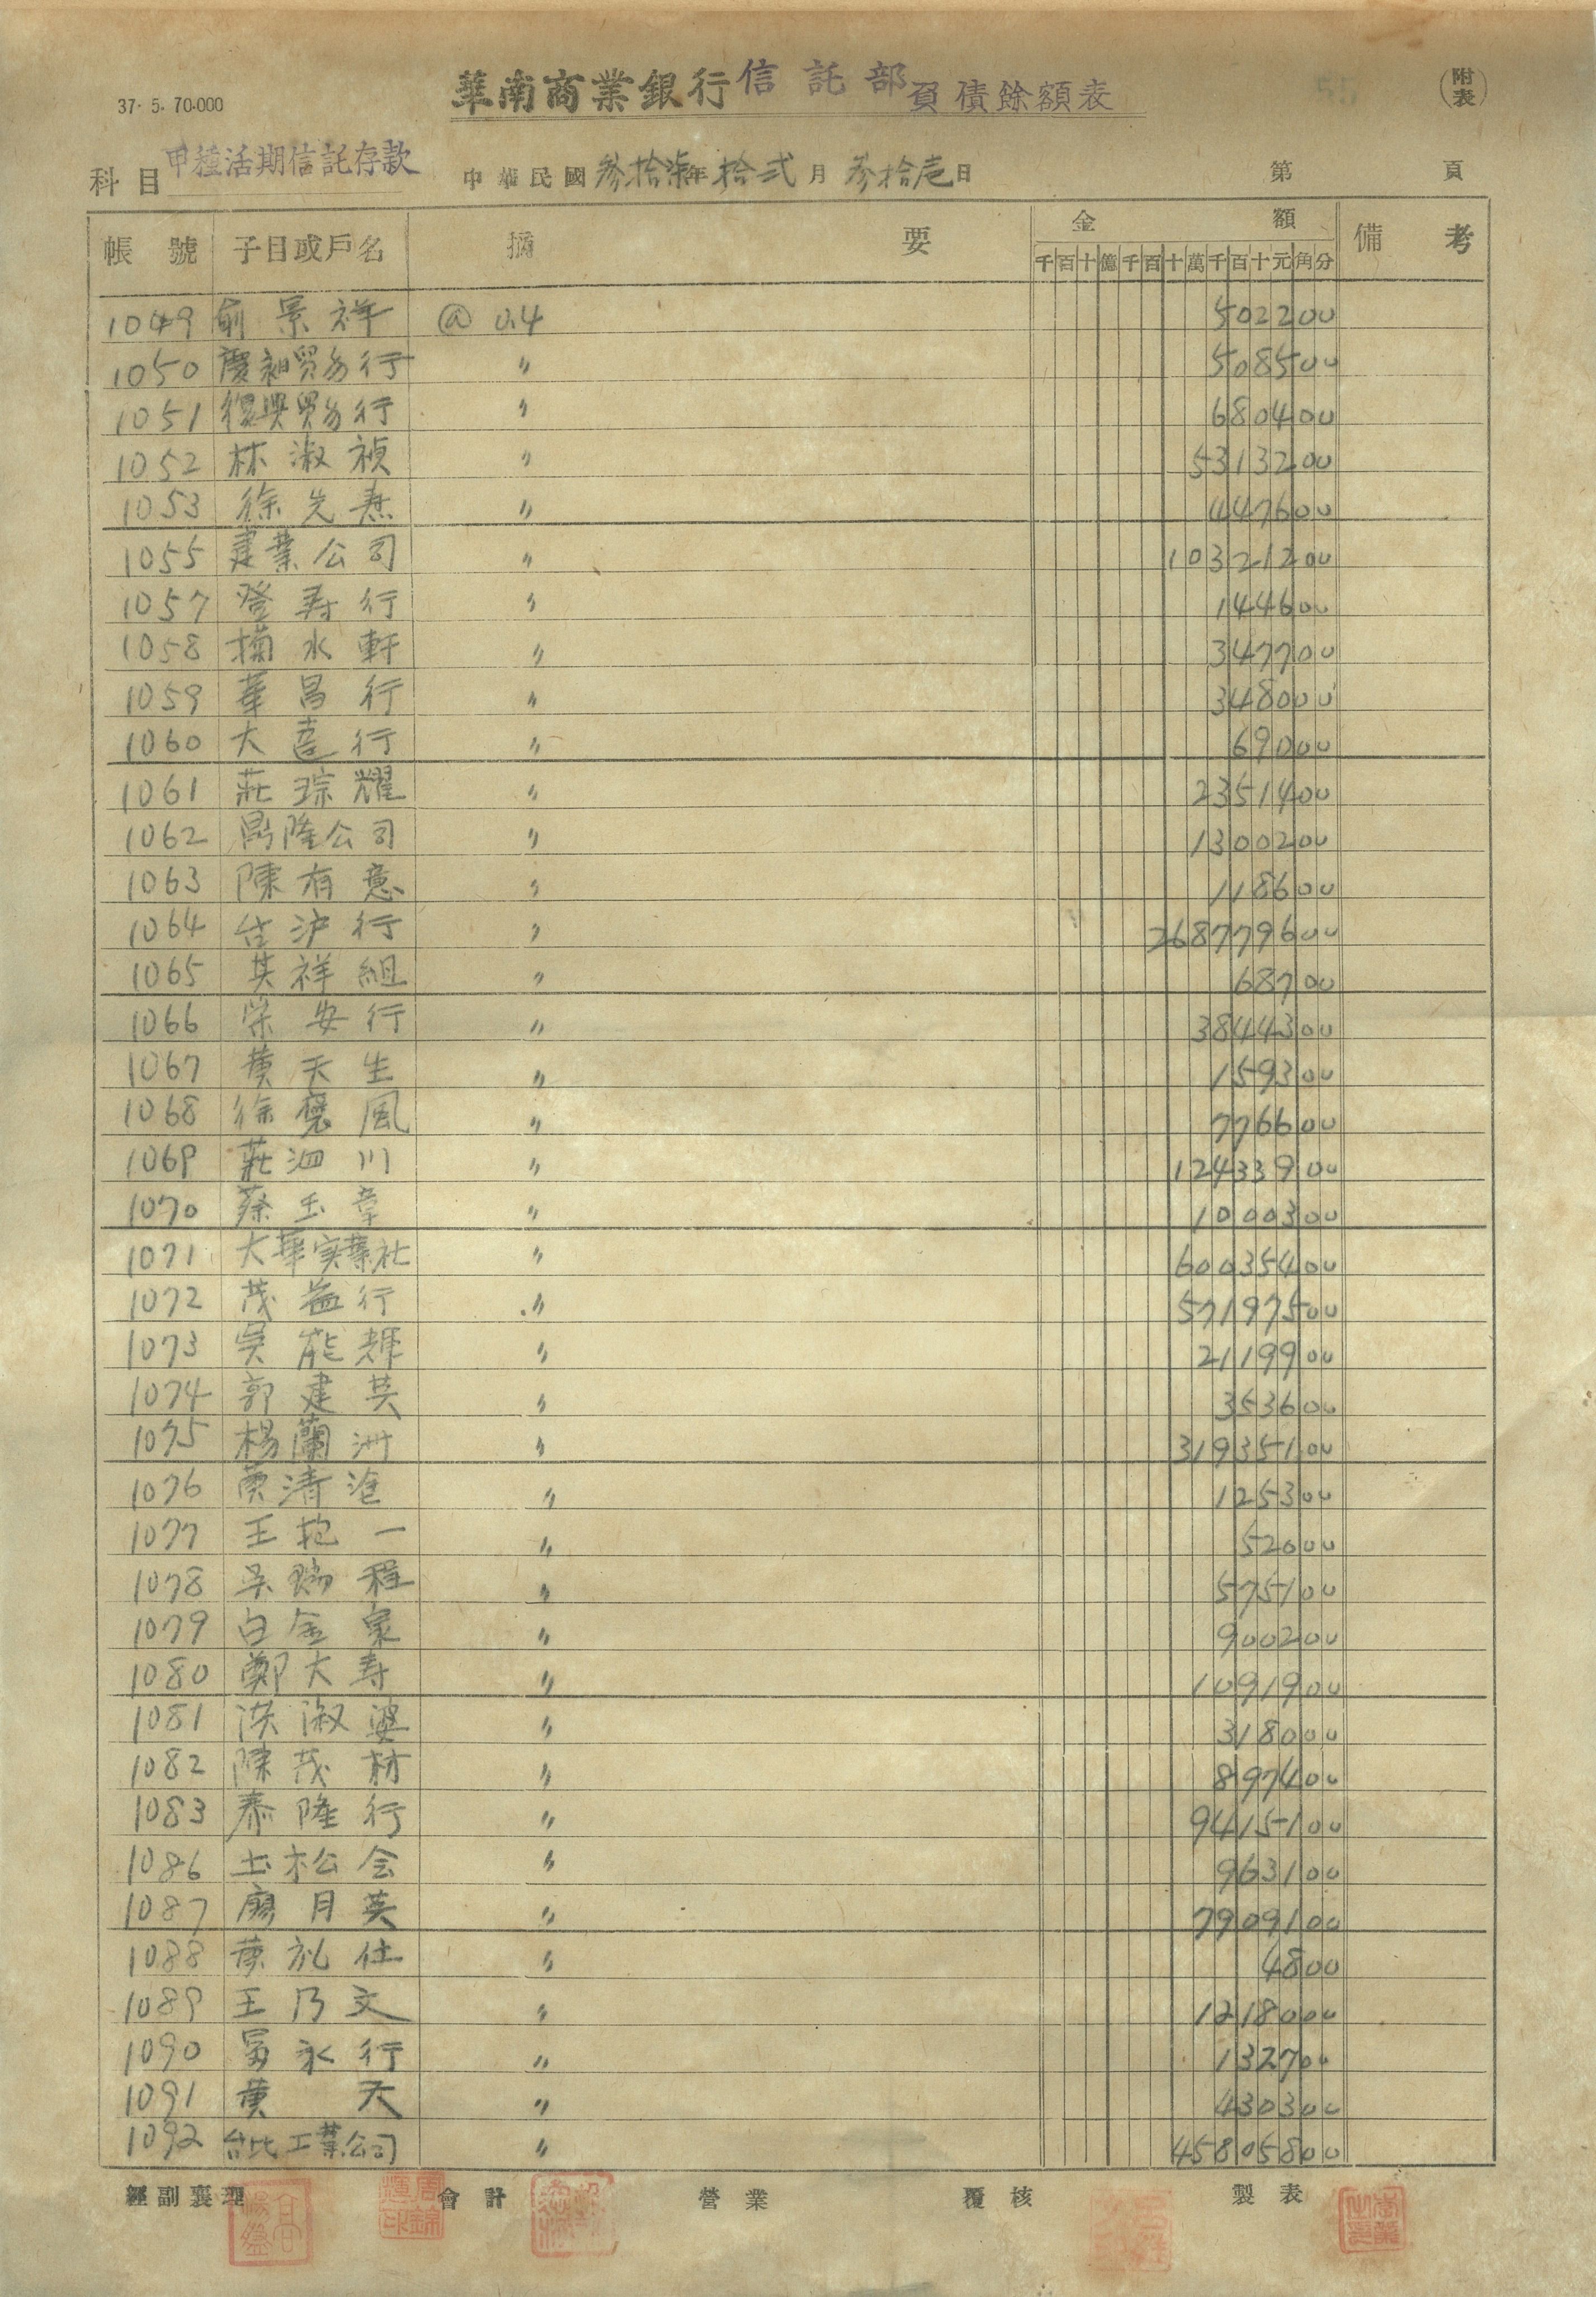 37. 5. 70.000
華南商業銀行信託部負債餘額表
(附表)
科目 甲種活期信託存款 中華民國叁拾柒年拾弍月叁拾壱日 第 頁
帳號 子目或戶名 摘要 金額 備考
千百十億千百十萬千百十元角分
1049 俞景祥 @ 0.4 502200
1050 慶昶貿易行 〃 508500
1051 復興貿易行 〃 680400
1052 林淑禎 〃 5313200
1053 徐先焘 〃 447600
1055 建業公司 〃 10321200
1057 登寿行 〃 144600
1058 水軒 〃 347700
1059 華昌行 〃 348000
1060 大行 〃 69000
1061 莊琮耀 〃 2351400
1062 隆公司 〃 1300200
1063 陳有意 〃 118600
1064 台沪行 〃 268779600
1065 其祥組 〃 68700
1066 榮安行 〃 3844300
1067 黃天生 〃 159300
1068 徐風 〃 776600
1069 莊泗川 〃 12433900
1070 蔡玉章 〃 1000300
1071 大華实業社 〃 60035400
1072 茂益行 〃 57197500
1073 吳能輝 〃 2119900
1074 郭建英 〃 353600
1075 楊蘭洲 〃 31935100
1076 黃清 〃 125300
1077 王抱一 〃 52000
1078 吴錫程 〃 575100
1079 白金泉 〃 900200
1080 鄭大寿 〃 1091900
1081 洪淑婆 〃 318000
1082 陳茂材 〃 897400
1083 泰隆行 〃 9415100
1086 玉松会 〃 963100
1087 廖月英 〃 7909100
1088 黃礼仕 〃 4800
1089 王乃文 〃 1218000
1090 富永行 〃 132700
1091 黃天 〃 430300
1092 台北工業公司 〃 45805800
經副襄理 會計 營業 覆核 製表